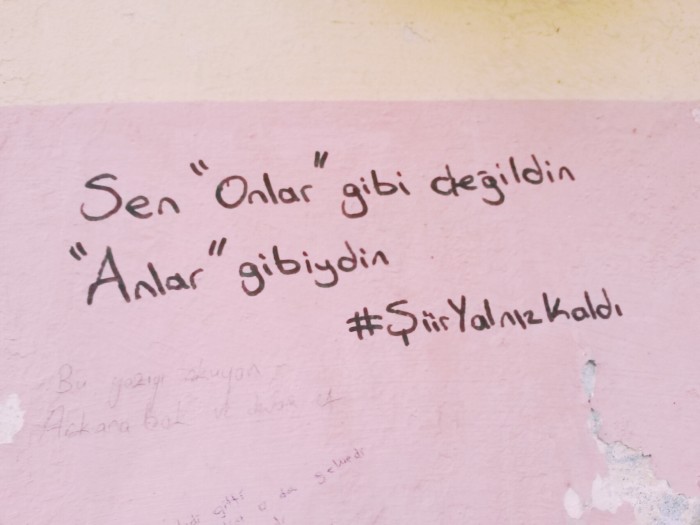 Sen "Onlar" gibi değildin
"Anlar" gibiydin
#ŞiirYalnızKaldı
Bu yazıyı okuyan
Arkana bak ve devam et